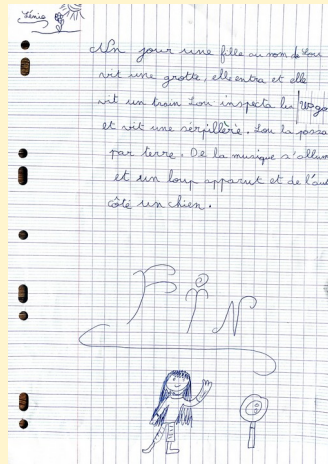 Un jour une fille au nom de Lou
vit une grotte, elle entra et elle
vit un train Lou inspecta
et vit une serpillère. Lou la passa
par terre. De la musique s'allum
et un loup apparut et de l'aut
côté un chien.
FiN